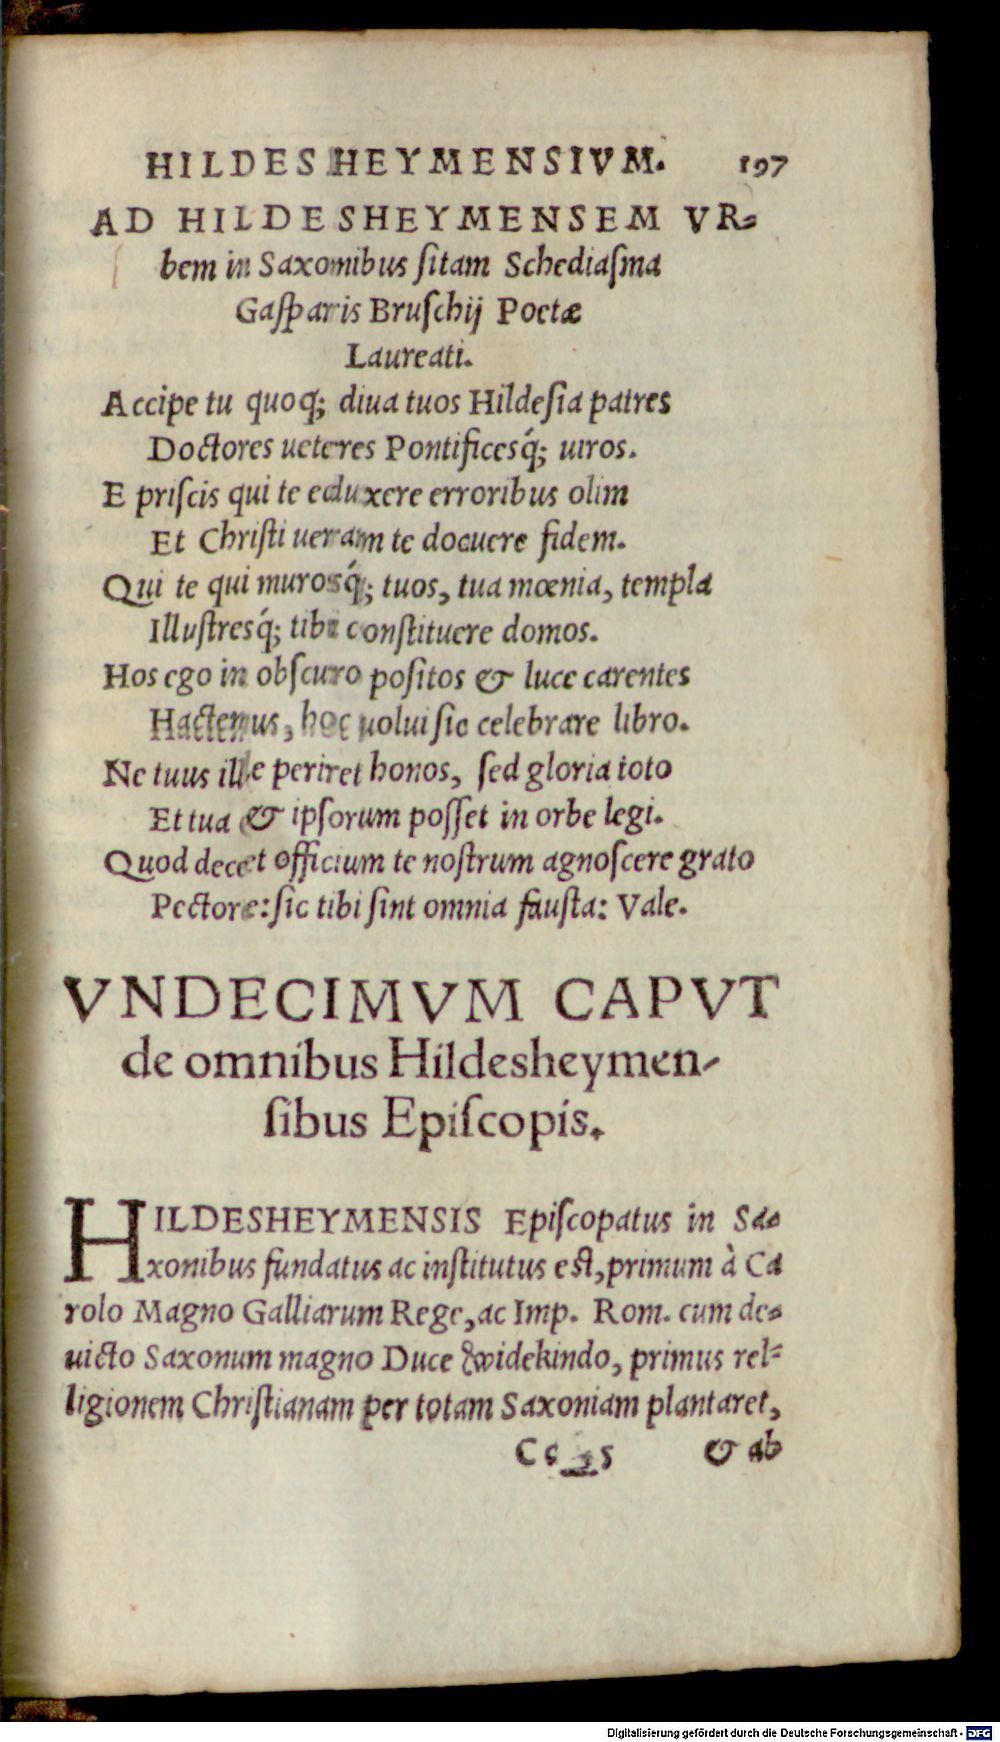 HILDESHEYMENSIVM. 197
AD HILDESHEYMENSEM VR-
bem in Saxonibus ſitam Schediaſma
Gaſparis Bruſchij Poetæ
Laureati.
Accipe tu quoq; diua tuos Hildeſia patres
Doctores ueteres Pontificesq́; uiros.
E priſcis qui te eduxere erroribus olim
Et Chriſti ueram te docuere fidem.
Qui te qui murosq́; tuos, tua mœnia, templa
Illuſtresq́; tibi conſtituere domos.
Hos ego in obſcuro poſitos & luce carentes
Hactenus, hoc uolui ſic celebrare libro.
Ne tuus ille periret honos, ſed gloria toto
Et tua & ipſorum poſſet in orbe legi.
Quod decet officium te noſtrum agnoſcere grato
Pectore: ſic tibi ſint omnia fauſta: Vale.
VNDECIMVM CAPVT
de omnibus Hildesheymen-
ſibus Epiſcopis.
HILDESHEYMENSIS Epiſcopatus in Sa-
xonibus fundatus ac inſtitutus eſt, primum à Ca
rolo Magno Galliarum Rege, ac Imp. Rom. cum de-
uicto Saxonum magno Duce Widekindo, primus rel-
ligionem Chriſtianam per totam Saxoniam plantaret,
& ab
Digitalisierung gefördert durch die Deutsche Forschungsgemeinschaft - DFG